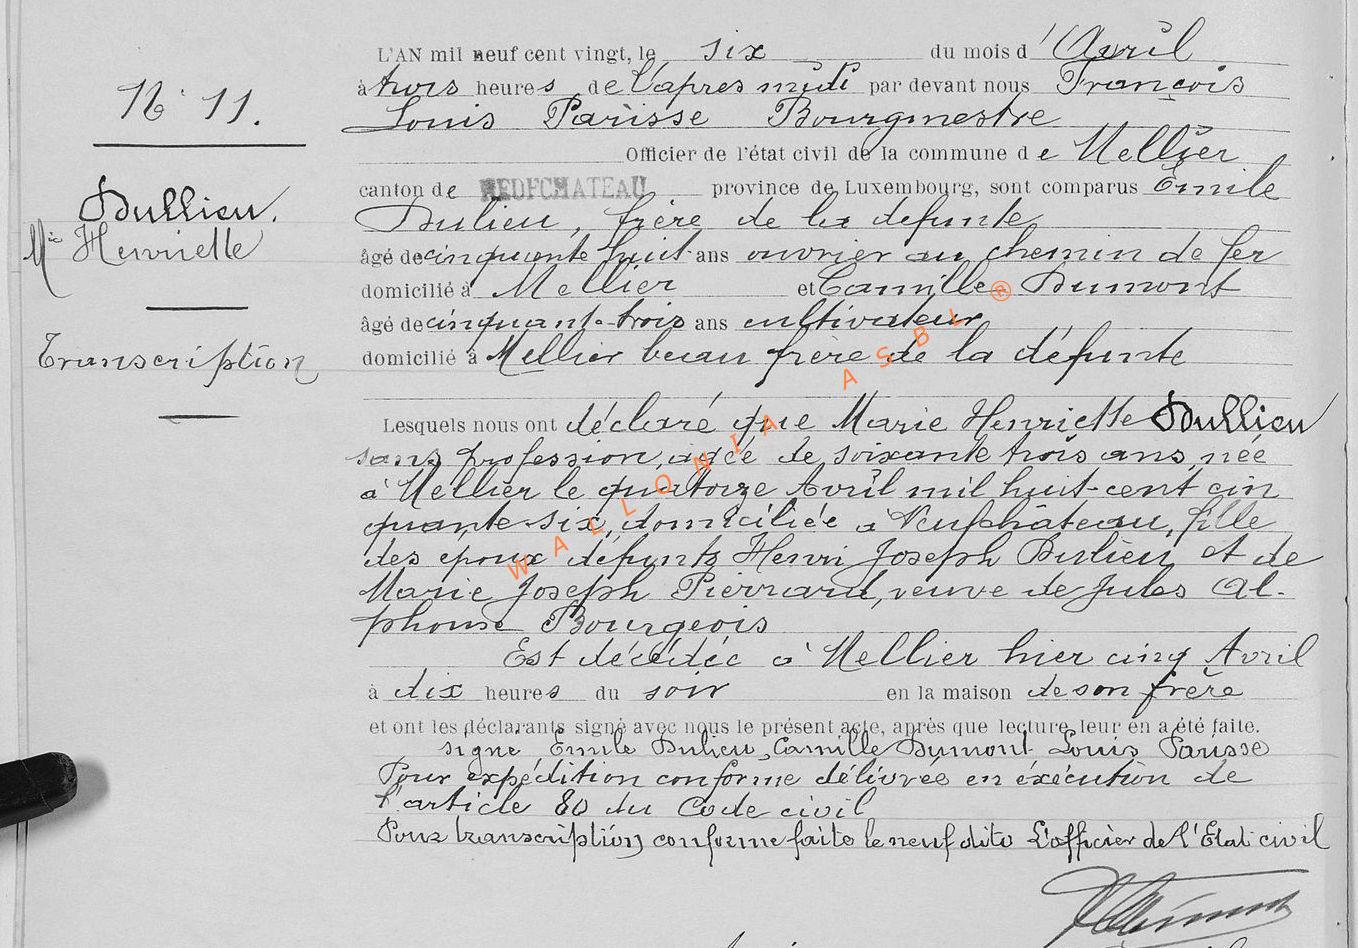 L'AN mil neuf cent vingt, le six du mois d'Avril
à trois heures de l'apres midi par devant nous François
Louis Parisse Bourgmestre
Officier de l'état civil de la commune de Mellier
canton de NEUFCHATEAU province de Luxembourg, sont comparus Emile
Dulieu, frère de la defunte
âgé de cinquante huit ans ouvrier au chemin de fer
domicilié à Mellier et Camille Dumont
âgé de cinquante-trois ans cultivateur
domicilié à Mellier beau frère de la défunte
N° 11.
Dullieu.
Mie Henriette
Transcription
Lesquels nous ont déclaré que Marie Henriette Dullieu
sans profession, agée de soixante trois ans, née
à Mellier le quatorze Avril mil huit-cent cin
quante-six, domiciliée à Neufchâteau, fille
des epoux défunts Henri Joseph Dulieu et de
Marie Joseph Pierrard, veuve de Jules Al-
phonse Bourgeois
Est décédée à Mellier hier cinq Avril
à dix heures du soir en la maison de son frère
et ont les déclarants signé avec nous le présent acte, après que lecture leur en a été faite.
signé Emile Dulieu, Camille Dumont Louis Parisse
Pour expédition conforme délivrée en éxécution de
l'article 80 du Code civil
Pour transcription conforme faite le neuf dito L'officier de l'Etat civil
WALLONIA ASBL ®